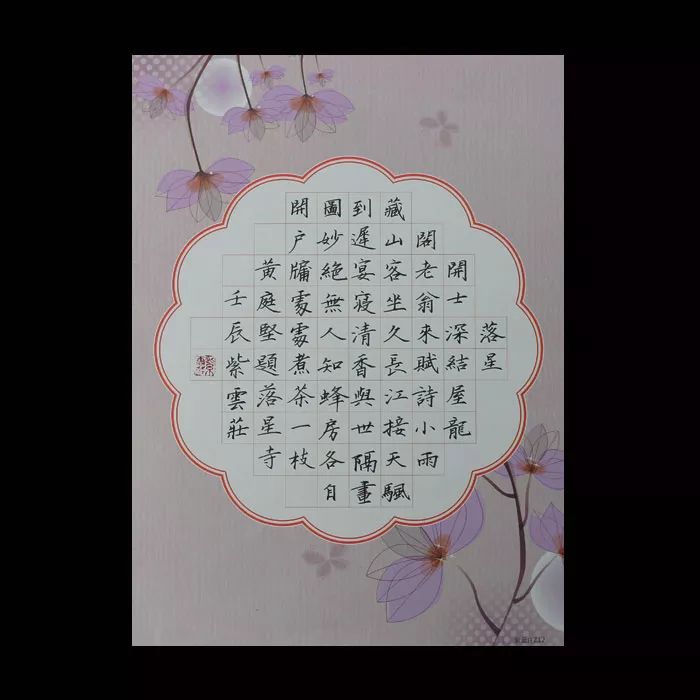 落星
開士深結屋龍
閣老翁來賦詩小雨
藏山客坐久長江接天颿
到遲宴寢清香與世隔畫
圖妙絕無人知蜂房各自
開戶牖處處煮茶一枝
黃庭堅題落星寺
壬辰紫雲莊